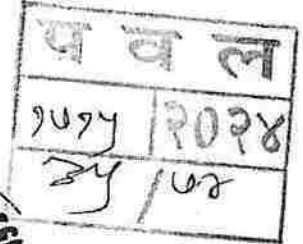 प व ल
१५१५ २०२४
३५ / ७२